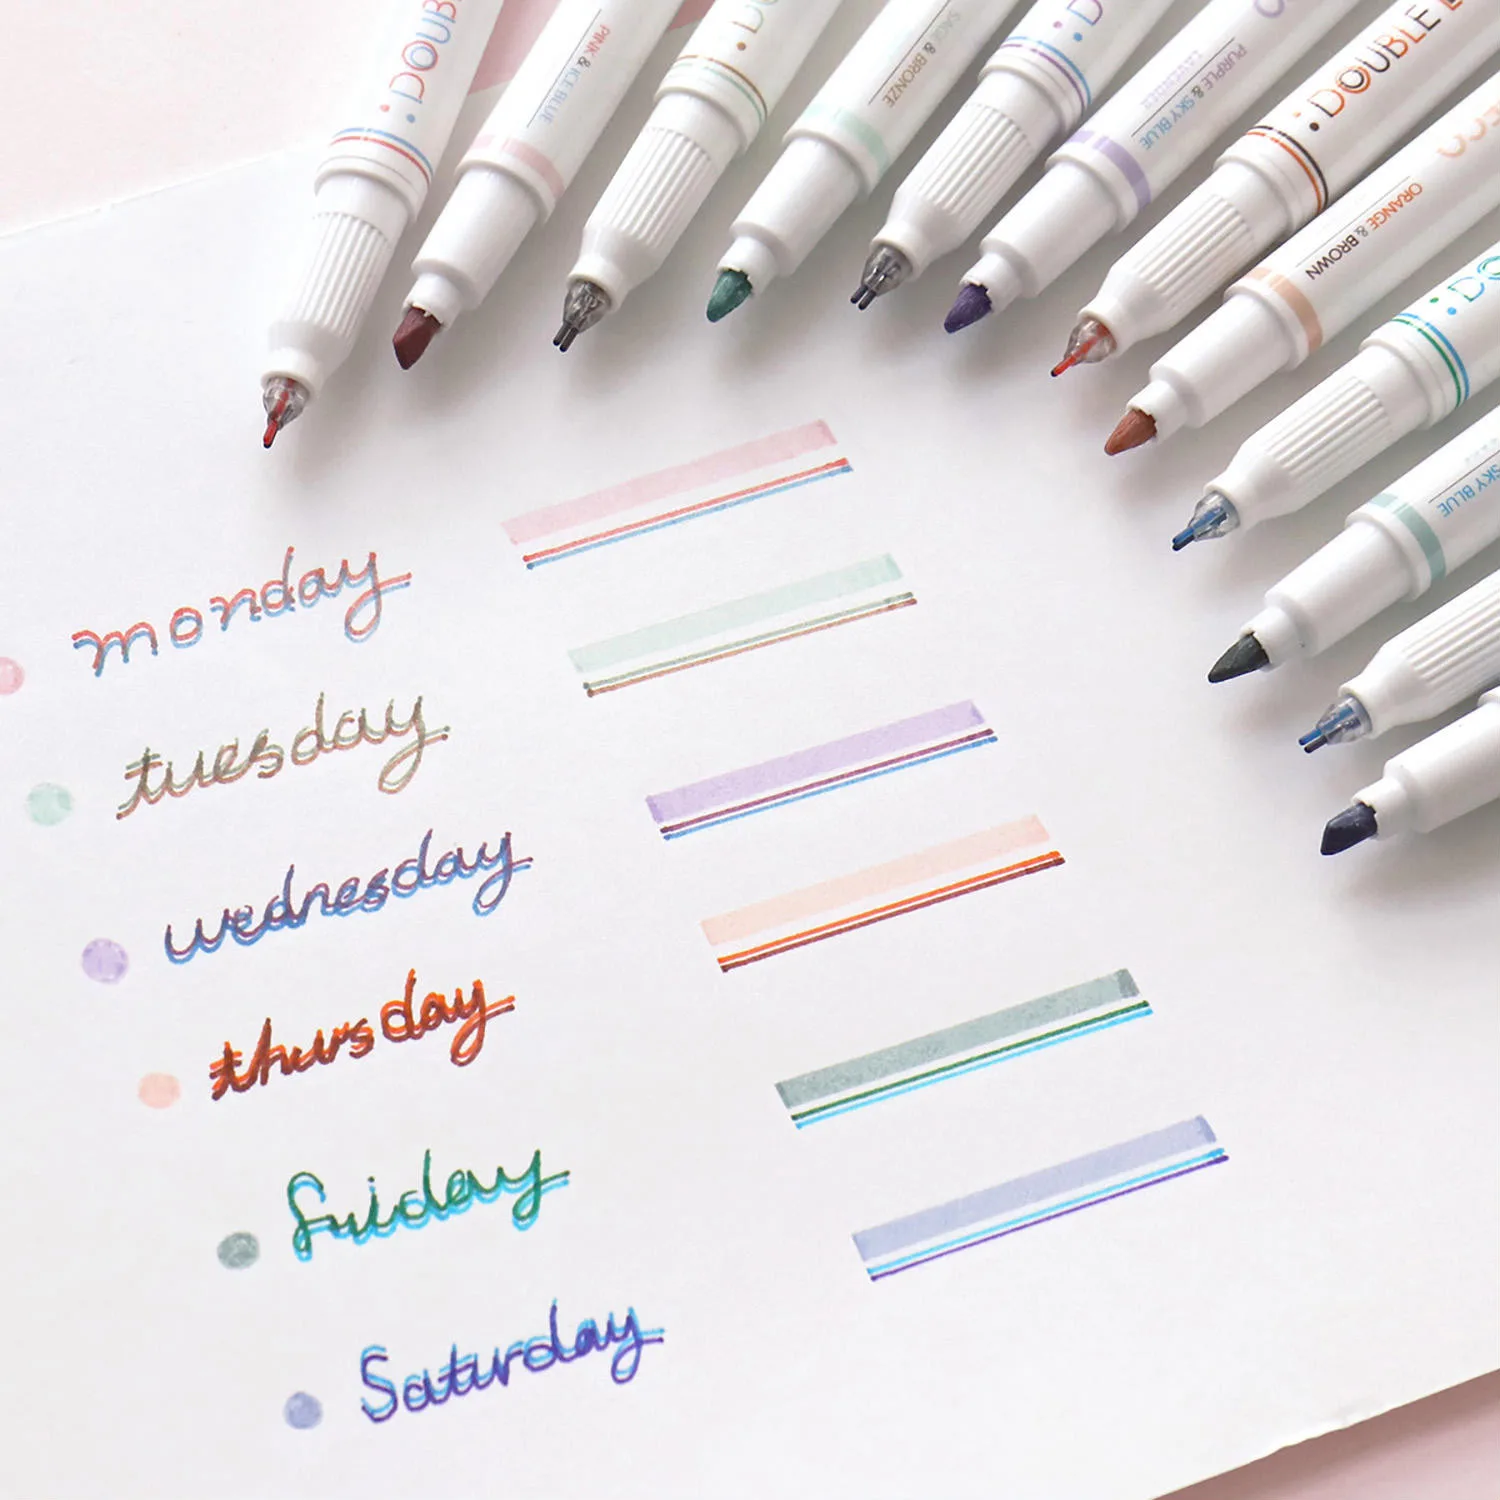 DOUB
PINK & ICE BLUE
SAGE & BRONZE
D
PURPLE & SKY BLUE
LAVENDER
DOUBLE
ORANGE & BROWN
SKY BLUE
monday
tuesday
wednesday
thursday
friday
Saturday